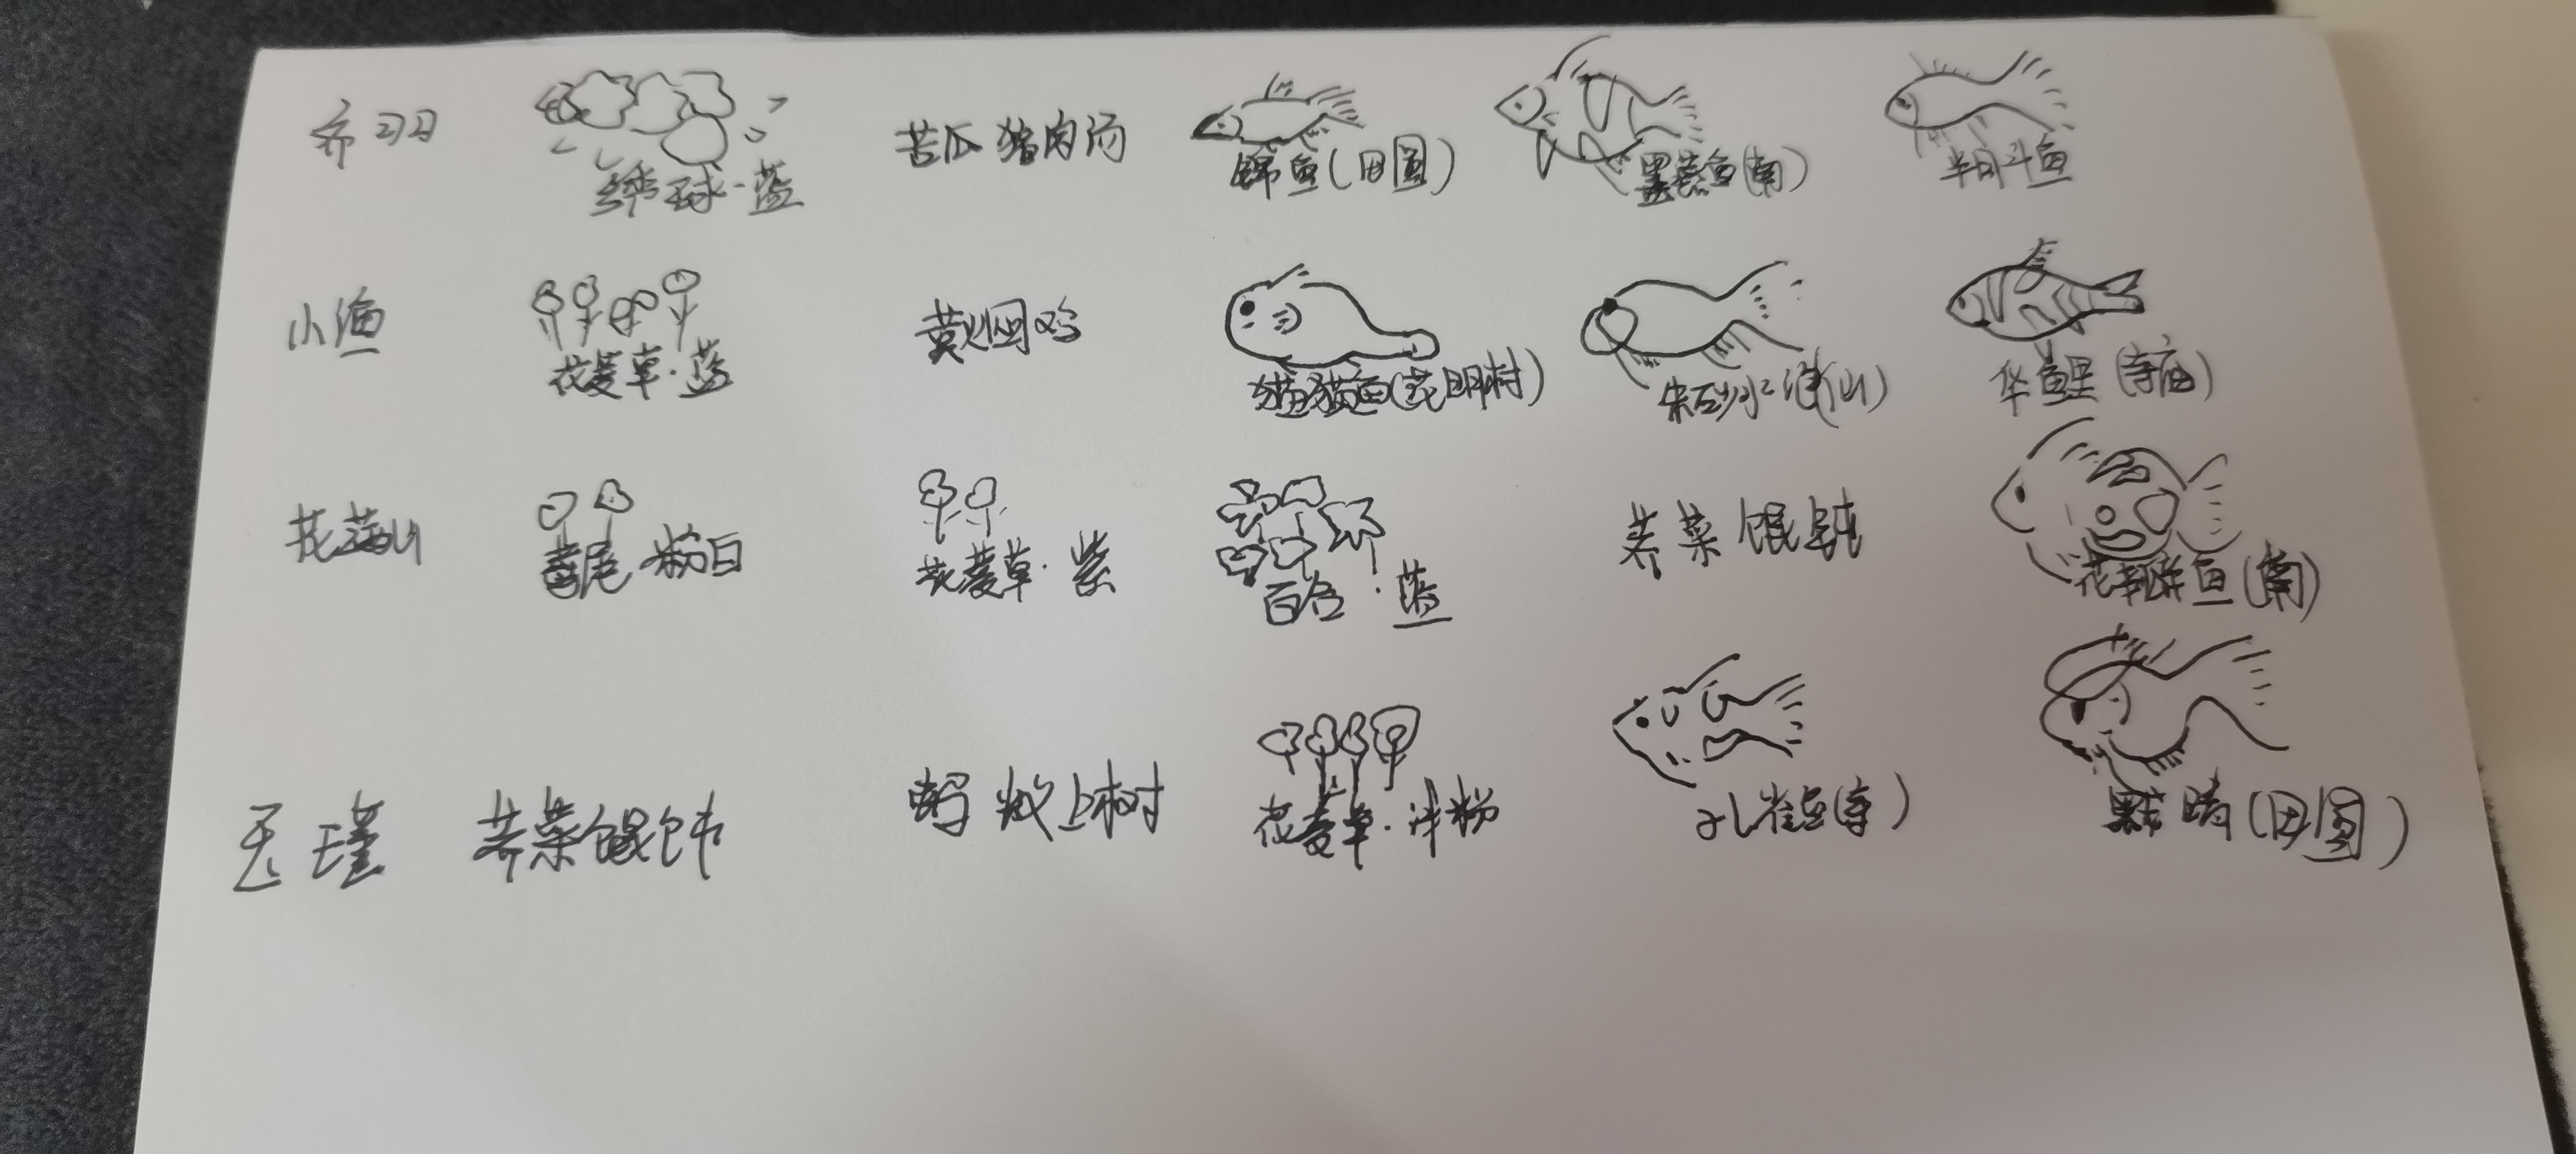 乔羽 绣球·蓝 苦瓜猪肉汤 锦鱼(田园) 墨燕鱼(南) 半月斗鱼
小渔 花菱草·蓝 黄焖鸡 猫猫鱼(花明村) 朱砂水泡(山) 华鲤(寺庙)
花满山 鸢尾·粉白 花菱草·紫 百合·蓝 荠菜馄饨 花瓣鱼(南)
玉瑾 荠菜馄饨 蚂蚁上树 花菱草·洋粉 孔雀鱼 墨睛(田园)